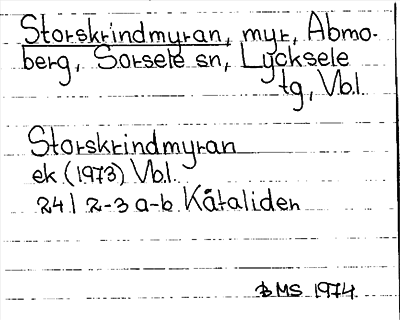 Storskrindmyran, myr, Abmo-
berg, Sorsele sn, Lycksele
tg, Vb.l.
Storskrindmyran
ek (1973) Vb.l.
24 I 2-3 a-b Kåtaliden
BMS 1974